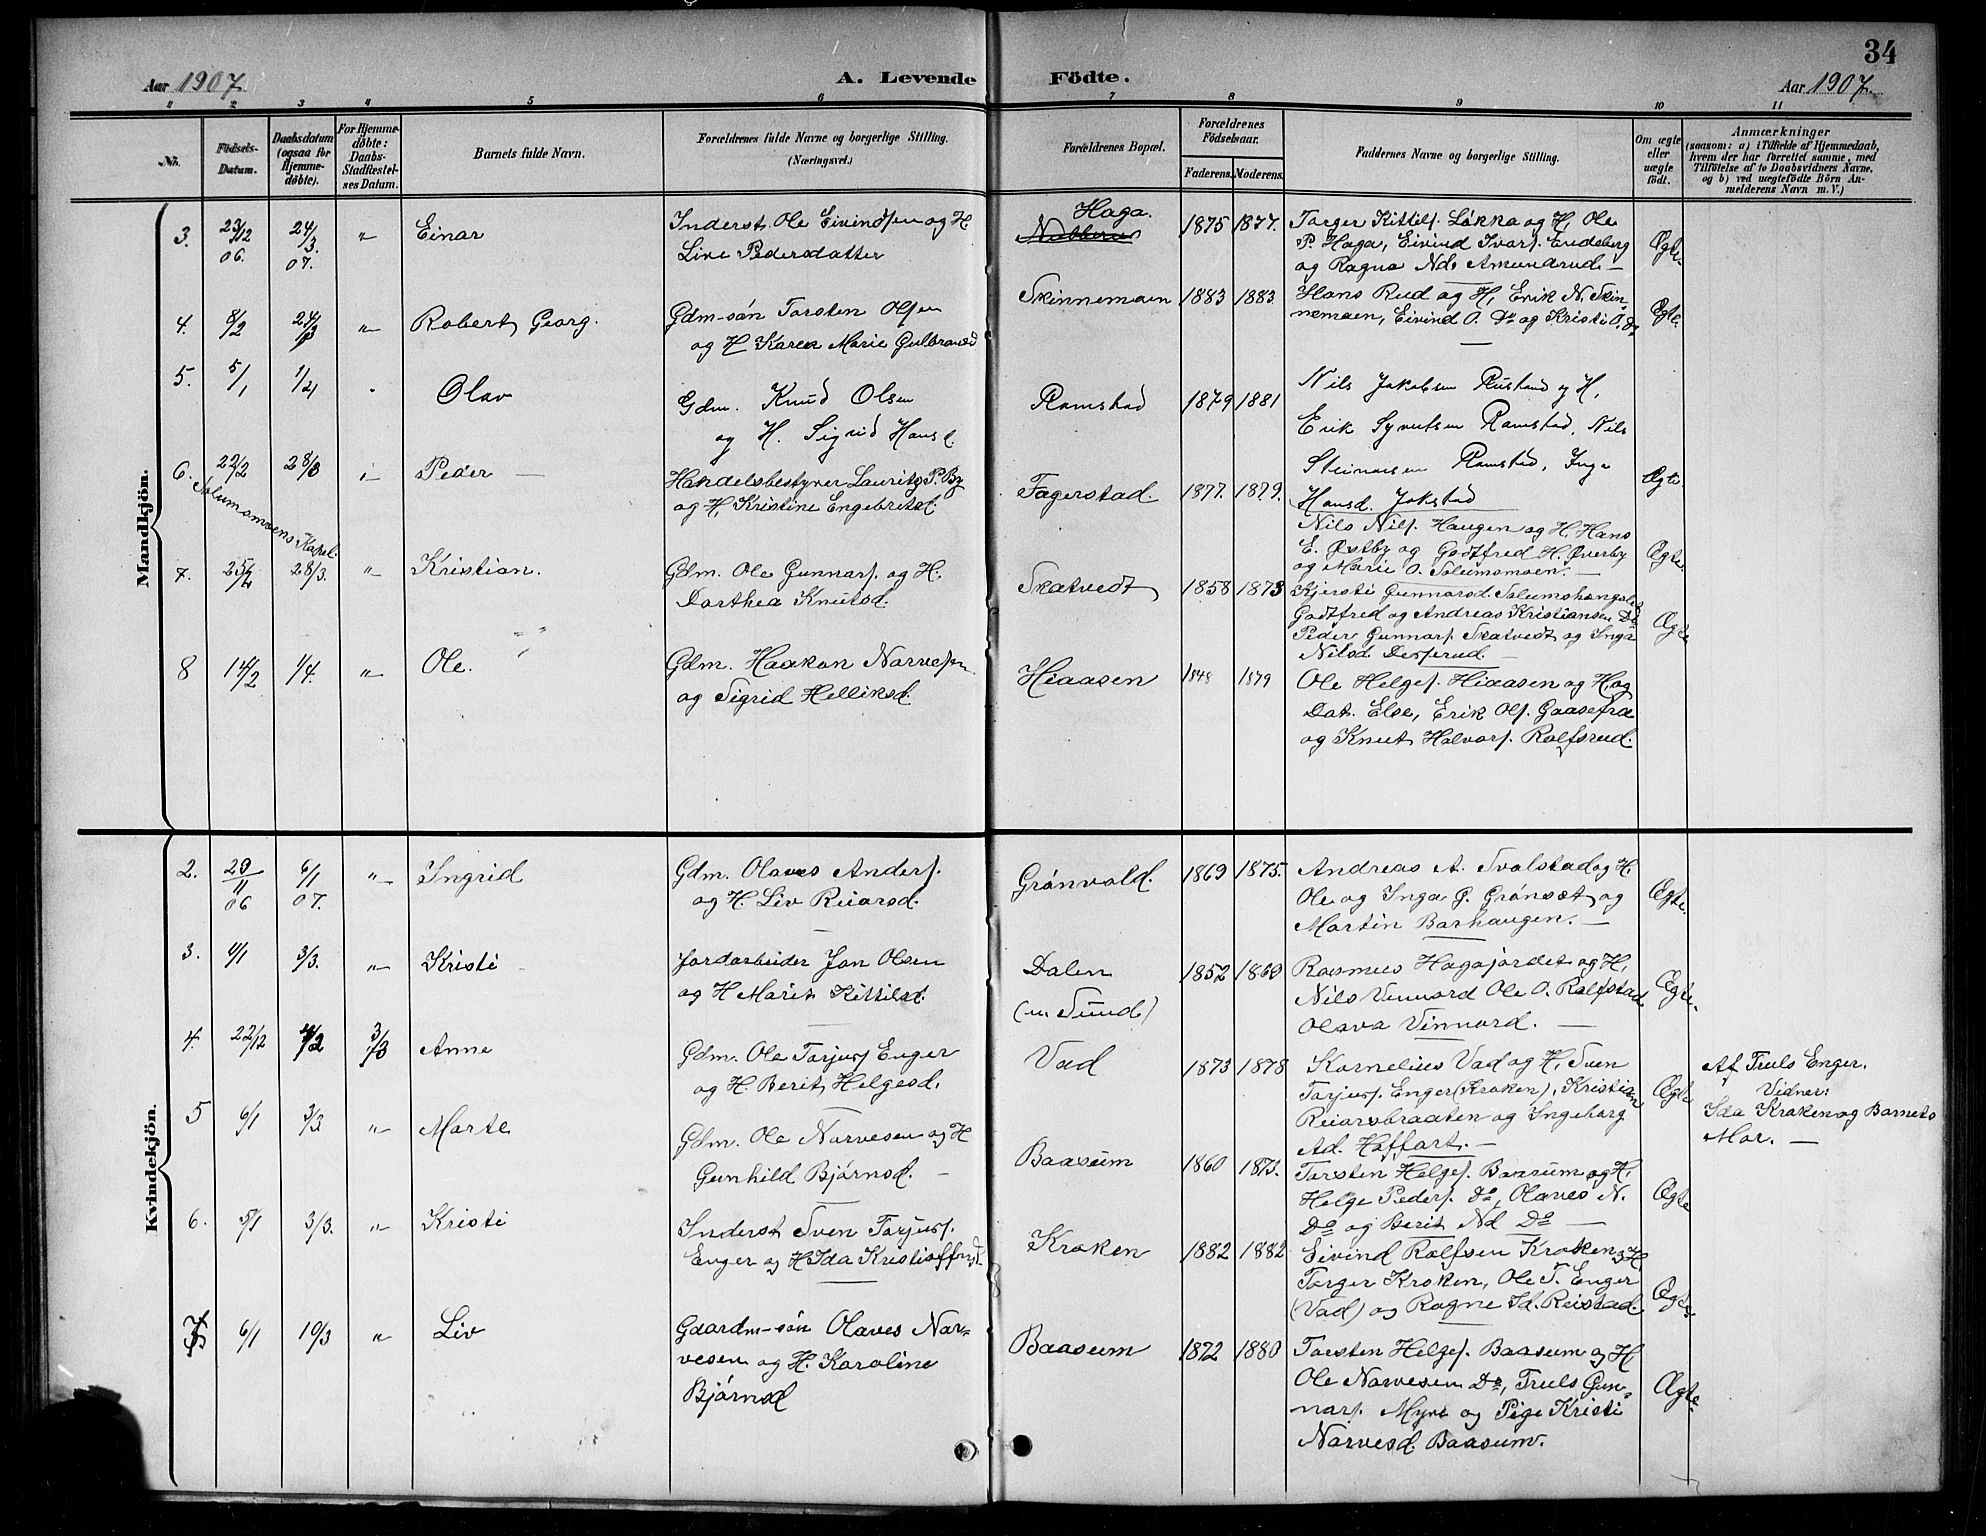 34
Aar 1907. A. Levende Födte. Aar 1907.
1 2 3 4 5 6 7 8 9 10 11
No. Födsels-Datum. Daabsdatum (ogsaa for Hjemme-döbte). For Hjemme-döbte: Daabs-Stadfæstel-ses Datum. Barnets fulde Navn. Forældrenes fulde Navne og borgerlige Stilling. (Næringsvei.) Forældrenes Bopæl. Forældrenes Födselsaar. Faderens. Moderens. Faddernes Navne og borgerlige Stilling. Om ægte eller uægte födt. Anmærkninger (saasom: a) i Tilfælde af Hjemmedaab, hvem der har forrettet samme, med Tilföielse af to Daabsvidners Navne, og b) ved uægtefödte Börn An-melderens Navn m. V.)
Mandkjön.
3. 23/12 06. 24/3 07. " Einar
Inderst Ole Eivindsen og H.
Live Pedersdatter
Haga. 1875 1877.
Torger Kittils. Løkka og H, Ole
P. Haga, Eivind Ivars. Endsberg
og Ragna Nd. Amundrud —
Ægte
4. 8/2 24/3 " Robert Georg.
Gdm-søn Torsten Olsen
og H Karen Marie Gulbransd
Skinnemoen 1883 1883
Hans Rud og H, Erik N. Skin-
nemoen, Eivind O. Do og Kristi O. Do
Ægte.
5. 5/1 1/4 Olav
Gdm. Knud Olsen
og H. Sigrid Hansd.
Ramstad 1879 1881
Nils Jakobsen Rustand og H,
Erik Syvertsen Ramstad, Nils
Steinarsen Ramstad, Inga
Hansd. Jokstad
Ægte
6. 22/2 28/3 " Peder —
Solumsmoens Kapel.
Handelsbestyrer Lauritz P. By
og H, Kristine Engebretsd.
Fagerstad. 1877. 1879.
Nils Nils. Haugen og H, Hans
E. Østby og Godtfred H. Øverby
og Marie O. Solumsmoen. —
Ægte.
7. 25/2 28/3. " Kristian.
Gdm. Ole Gunnars. og H.
Dorthea Knutsd.
Skatvedt 1858 1873
Kjersti Gunnarsd.
Godtfred og Andreas Kristiansen Do
Peder Gunnars. Skatvedt og Inga
Nilsd. Desserud. —
Ægte
8 14/2 1/4. " Ole.
Gdm. Haakon Narvesen
og Sigrid Helliksd.
Hiaasen 1848 1879
Ole Helges. Hiaasen og H, og
Dat. Else, Erik Ols. Gaasefra
og Knut Halvors. Rolfsrud.
Kvindekjön.
2. 29/11 06 6/1 07. " Ingrid
Gdm. Olaves Anders.
og H. Liv Reiarsd.
Grønvold. 1869 1875.
Andreas A. Tvalstad og H.
Ole og Inga G. Grønset og
Martin Barhaugen. —
Ægte.
3. 4/1 3/3. " Kristi
Jordarbeider Jon Olsen
og H Marit Kittilsd.
Dalen
(u. Sund) 1852 1869
Rasmus Hagajordet og H,
Nils Vinnord Ole O. Rolfstad
Olava Vinnord. —
Ægte.
4. 22/12 4/2 3/3 Anne
Gdm. Ole Torjus. Enger
og H. Berit Helgesd.
Vad 1873 1878
Kornelius Vad og H, Sven
Torjus. Enger (Kroken), Kristian
Reiarsbraaten og Ingeborg
Ad. Haffart. —
Ægte
Af Truls Enger.
Vidner:
Ida Kroken og Barnets
Mor. —
5 6/1 3/3 " Marte
Gdm. Ole Narvesen og H
Gunhild Bjørnsd. —
Baasum 1860 1873.
Torsten Helges. Baasum og H,
Helge Peders. Do, Olaves N.
Do og Berit Nd Do —
Ægte
6. 5/1 3/3. " Kristi
Inderst Sven Torjus.
Enger og H Ida Kristoffersd.
Kroken 1882 1882
Eivind Rolfsen Kroken og H,
Torger Kroken, Ole T. Enger
(Vad) og Ragne Id. Reistad.
Ægte
7 6/1 10/3 " Liv
Gaardm-søn Olaves Nar-
vesen og H. Karoline
Bjørnsd
Baasum 1872 1880
Torsten Helges. Baasum og H
Ole Narvesen Do, Truls Gun-
nars. Myre og Pige Kristi
Narvesd. Baasum.
Ægte.